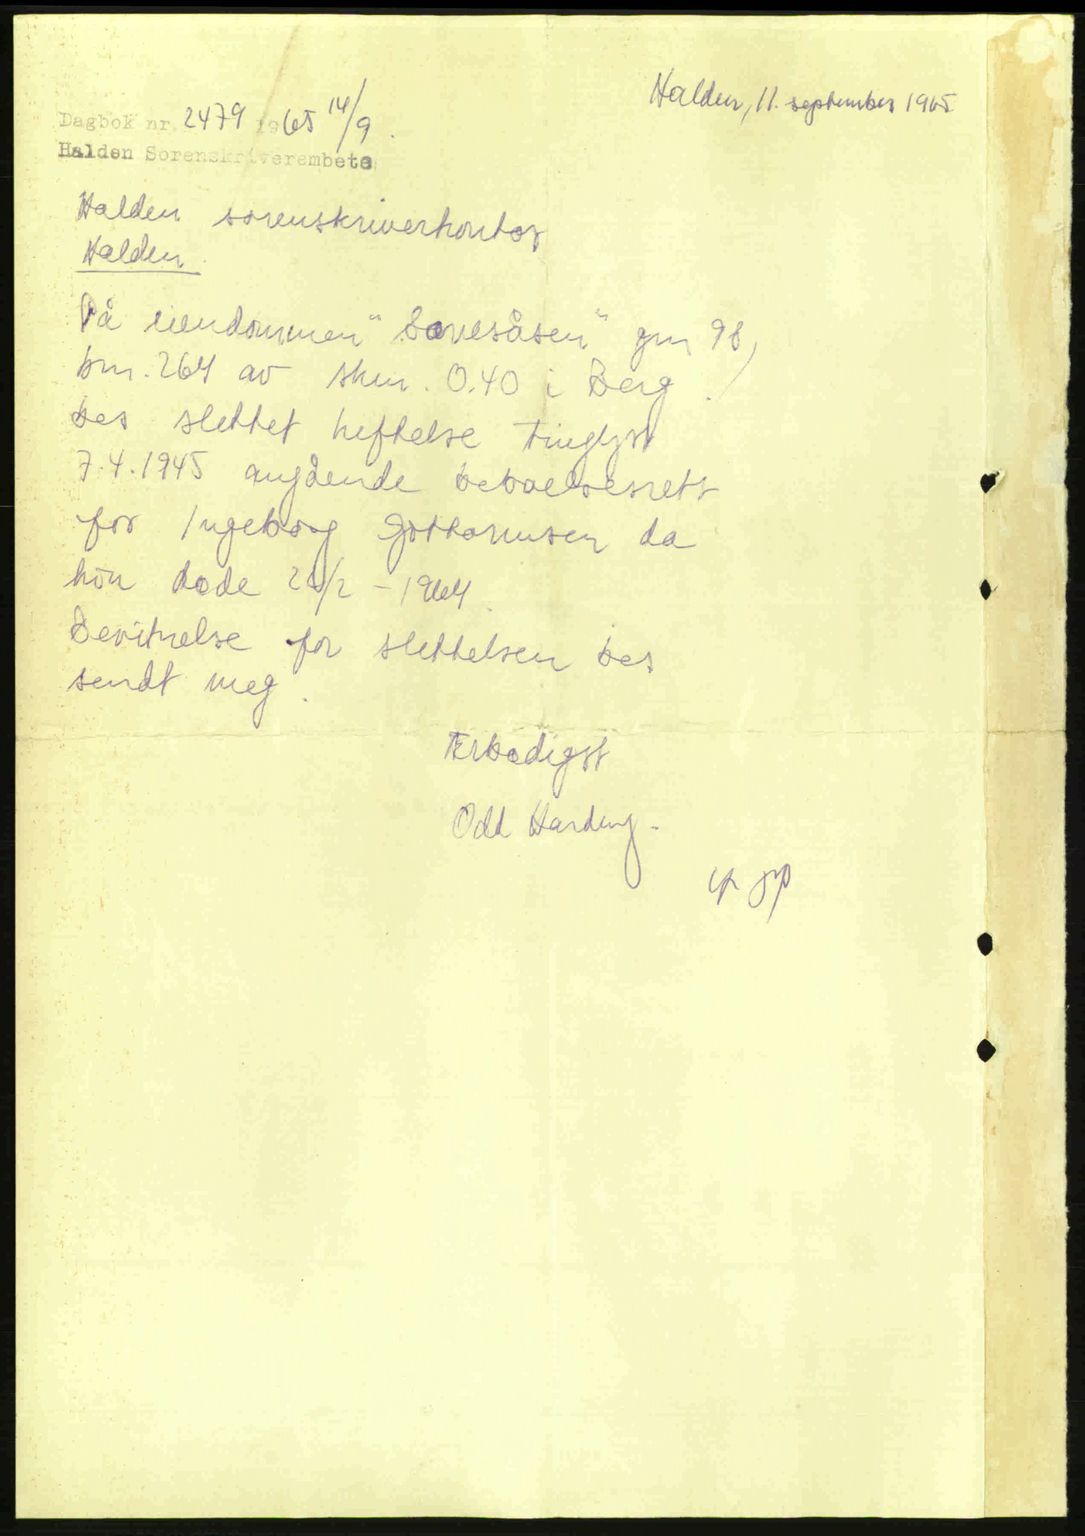 Halden, 11. september 1965
Dagbok nr. 2479 1965 14/9.
Halden Sorenskriverembete
Halden sorenskriverkontor
Halden.
På eiendommen "Løvesåsen" gnr 98,
bnr. 264 av skm. 0.40 i Berg,
bes slettet heftelse tinglyst
7.4.1945 angående beboelsesrett
for Ingeborg Gottormsen da
hun døde 2/2 - 1964.
Bevitnelse for slettelsen bes
sendt meg.
Ærbødigst
Odd Harding.